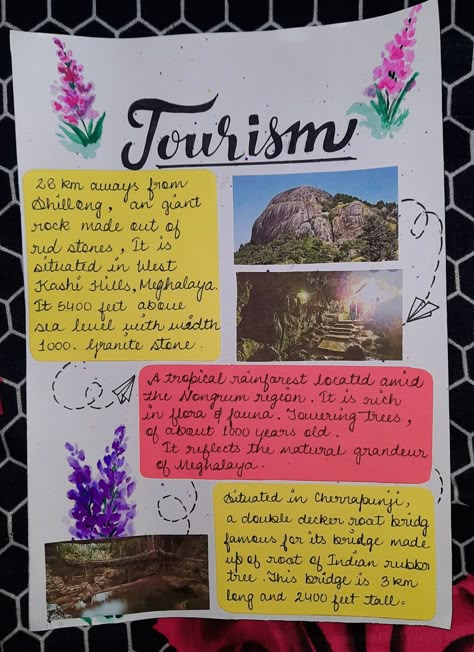 Tourism
28 km aways from
Shillong, an giant
rock made out of
red stones, It is
situated in West
Kashi Hills, Meghalaya.
It 5400 feet above
sea level with width
1000. Granite stone.
A tropical rainforest located amid
the Nongrum region. It is rich
in flora & fauna. Towering trees,
of about 1000 years old.
It reflects the natural grandeur
of Meghalaya.
Situated in Cherrapunji,
a double decker root bridg
famous for its bridge made
up of root of Indian rubber
tree. This bridge is 3 km
long and 2400 feet tall.